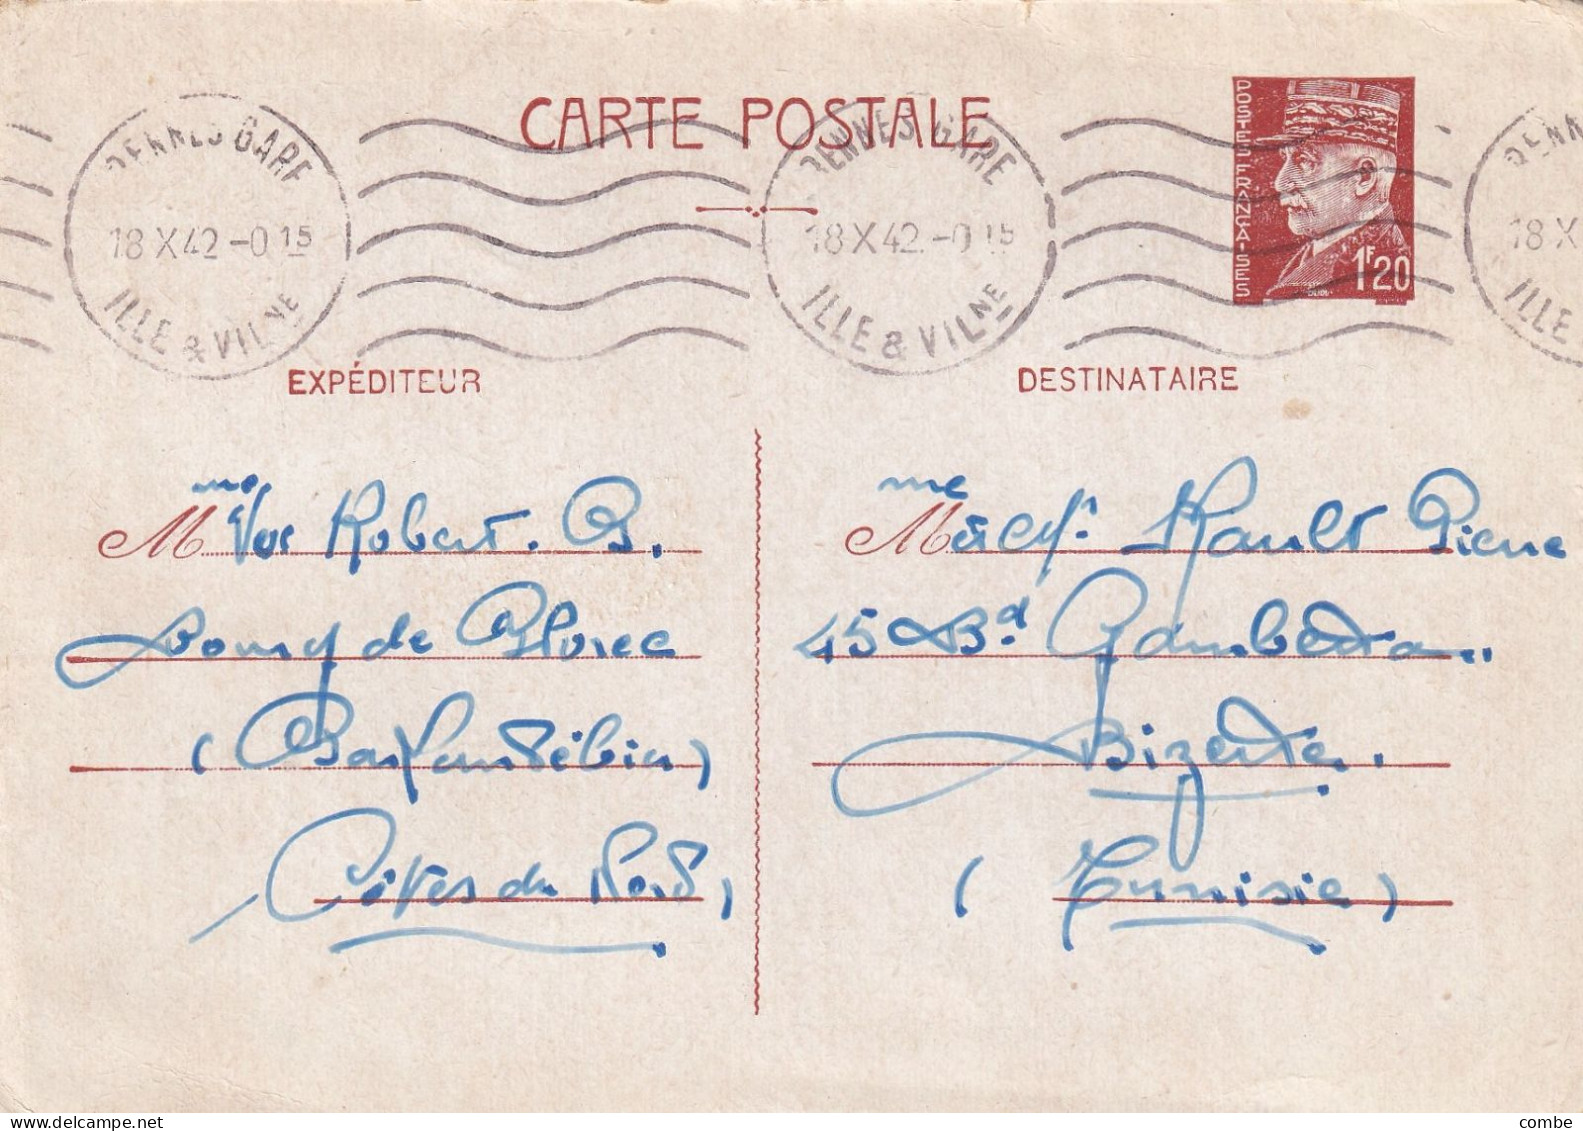 CARTE POSTALE
RENNES GARE
18 X 42 -0 15
ILLE & VILNE
RENNES GARE
18 X 42 -0 15
ILLE & VILNE
RENN
18 X
ILLE
POSTES FRANÇAISES
1F20
EXPÉDITEUR
DESTINATAIRE
Mme Vve Robert. B.
Bourg de
Côtes du Nord
Mme et Mr Rault Pierre
45 Bd Gambetta
Bizerte.
(Tunisie)
www.delcampe.net
combe